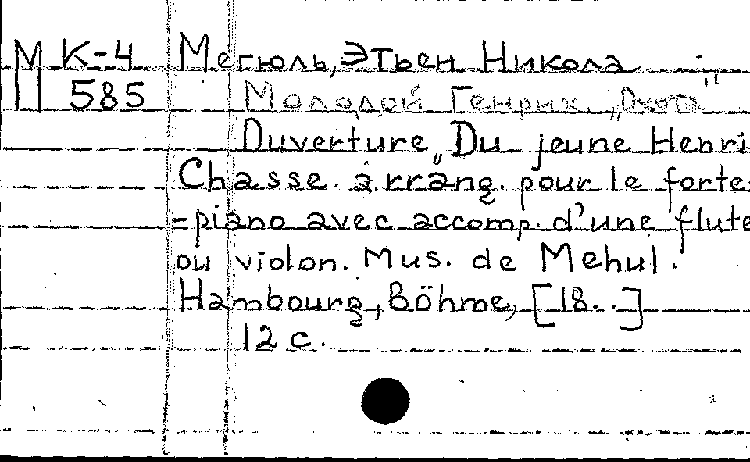 М К-4 Мегюль, Этьен Никола
II 585 Молодой Генрих. „Охота"
Ouverture „Du jeune Henri
Chasse. arrang. pour le forte-
-piano avec accomp. d'une flute
ou violon. Mus. de Mehul.
Hambourg, Böhme, [18..]
12 с.